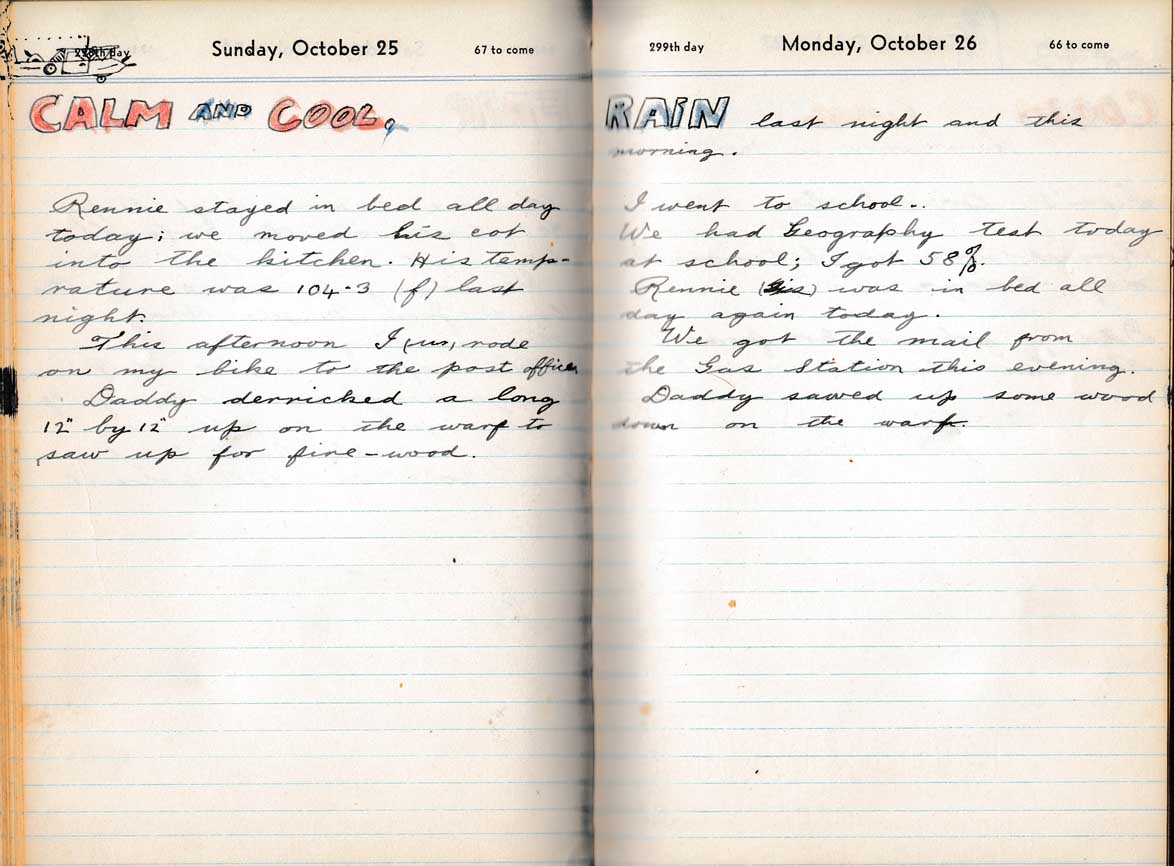 298th day Sunday, October 25 67 to come
CALM AND COOL.
Rennie stayed in bed all day
today; we moved his cot
into the kitchen. His temp-
rature was 104-3 (f) last
night.
This afternoon I rode
on my bike to the post office.
Daddy derricked a long
12" by 12" up on the warf to
saw up for fire-wood.
299th day Monday, October 26 66 to come
RAIN last night and this
morning.
I went to school..
We had Geography test today
at school; I got 58%.
Rennie was in bed all
day again today.
We got the mail from
the Gas Station this evening.
Daddy sawed up some wood
down on the warf.